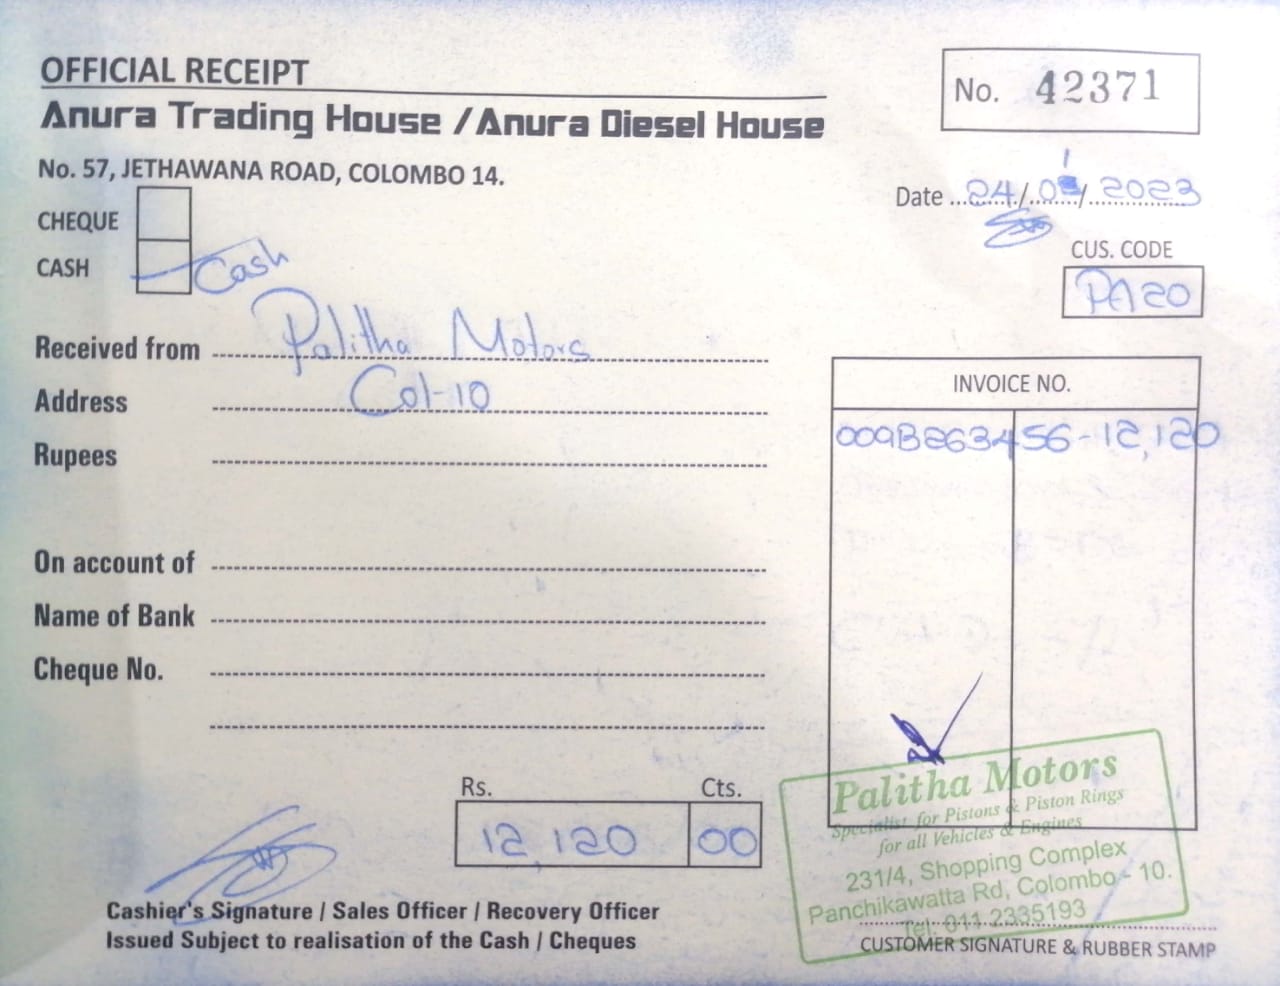 OFFICIAL RECEIPT
Anura Trading House / Anura Diesel House
No. 57, JETHAWANA ROAD, COLOMBO 14.
No. 42371
Date 24/01/2023
CHEQUE
CASH Cash
CUS. CODE
PA20
Received from Palitha Motors
Address Col-10
Rupees
On account of
Name of Bank
Cheque No.
INVOICE NO.
009B263456-12,120
Rs. Cts.
12,120 00
Cashier's Signature / Sales Officer / Recovery Officer
Issued Subject to realisation of the Cash / Cheques
Palitha Motors
Specialist for Pistons & Piston Rings
for all Vehicles & Engines
231/4, Shopping Complex
Panchikawatta Rd, Colombo - 10.
Tel: 011 2335193
CUSTOMER SIGNATURE & RUBBER STAMP